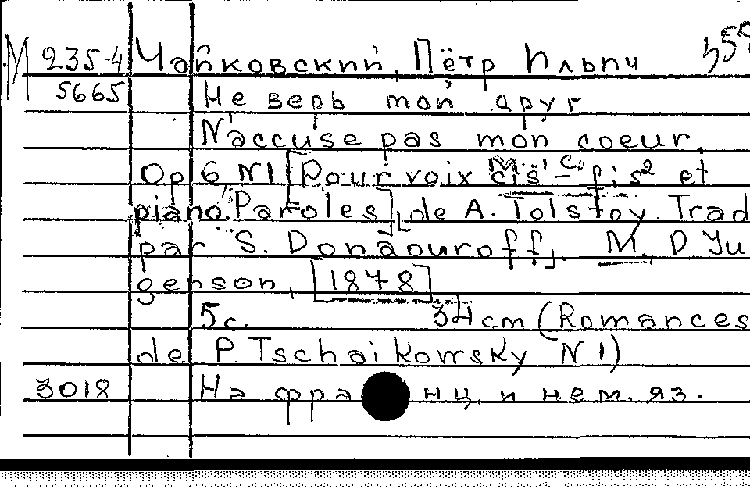 М 235-4 Чайковский, Пётр Ильич
5665 Не верь мой друг
N'accuse pas mon coeur.
Op 6 N1 [Pour voix cis¹ - fis² et
piano. Paroles] de A. Tolstoy. Trad
par S. Donaouroff]. M. P Ju
genson, [1878]
5 с. 34 cm (Romances
de P Tschaikowsky N 1)
3018 На франц. и нем. яз.